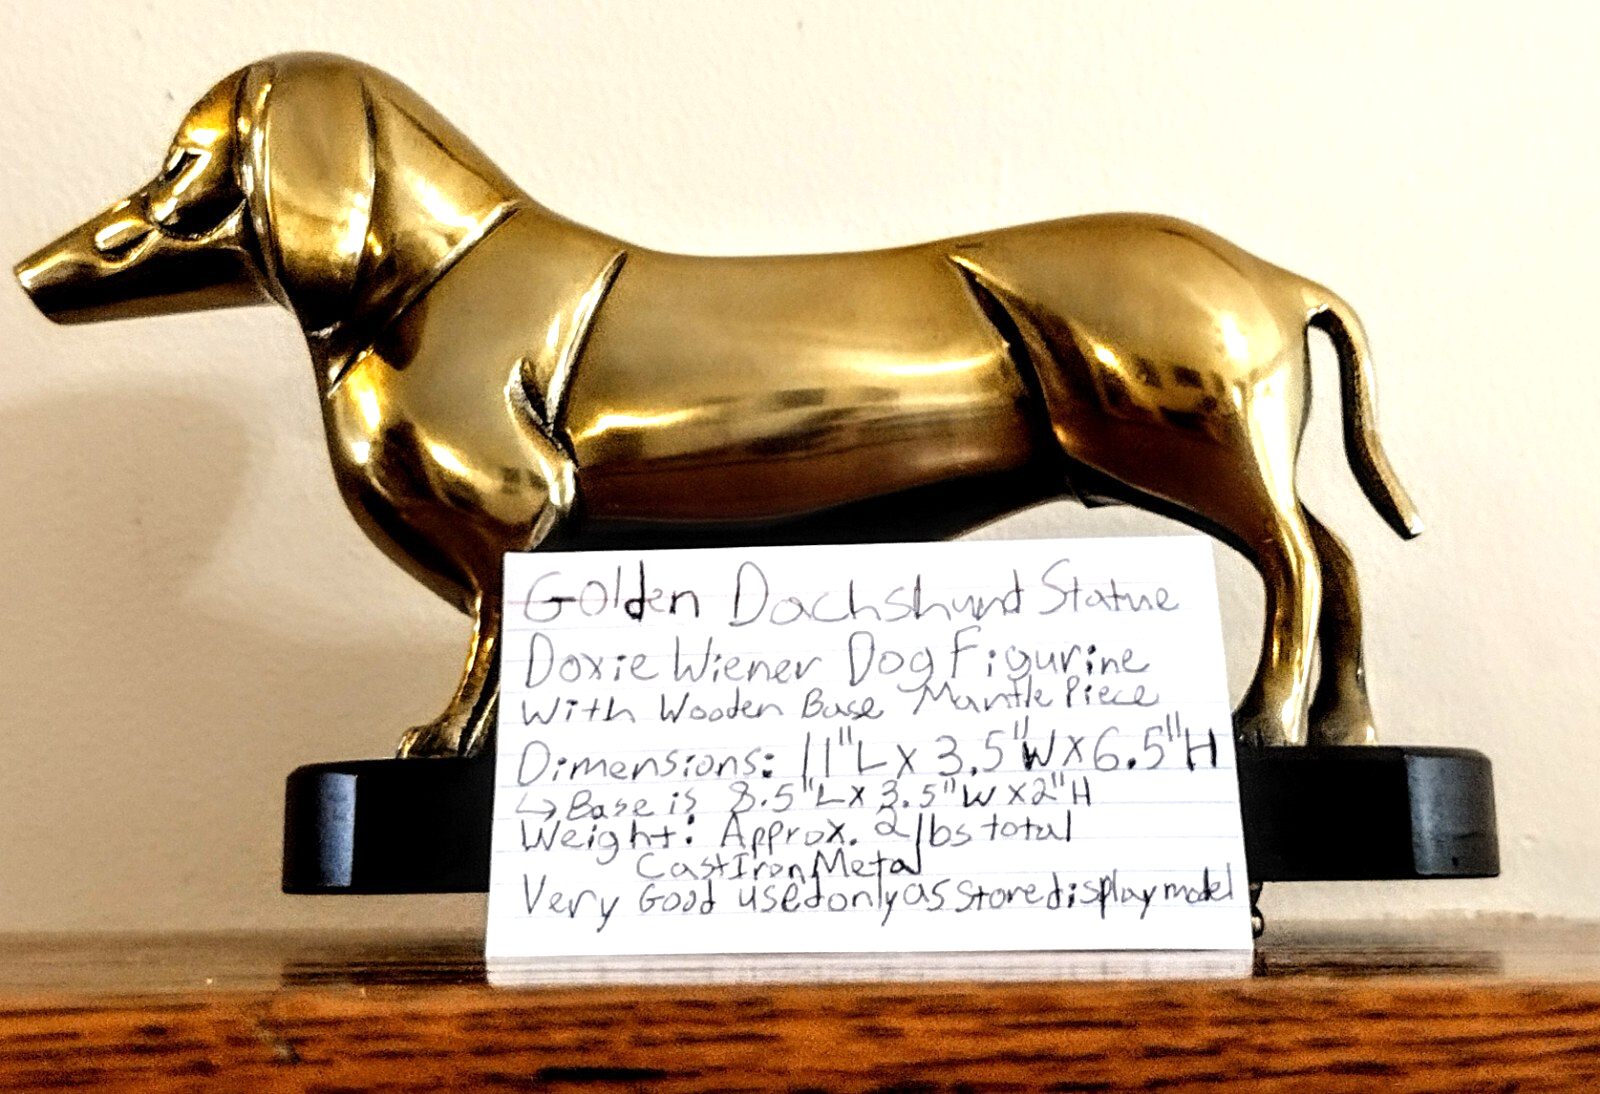 Golden Dachshund Statue
Doxie Wiener Dog Figurine
With Wooden Base Mantle Piece
Dimensions: 11"L x 3.5"W x 6.5"H
↳ Base is 8.5"L x 3.5"W x 2"H
Weight: Approx. 2 lbs total
Cast Iron Metal
Very Good used only as store display model